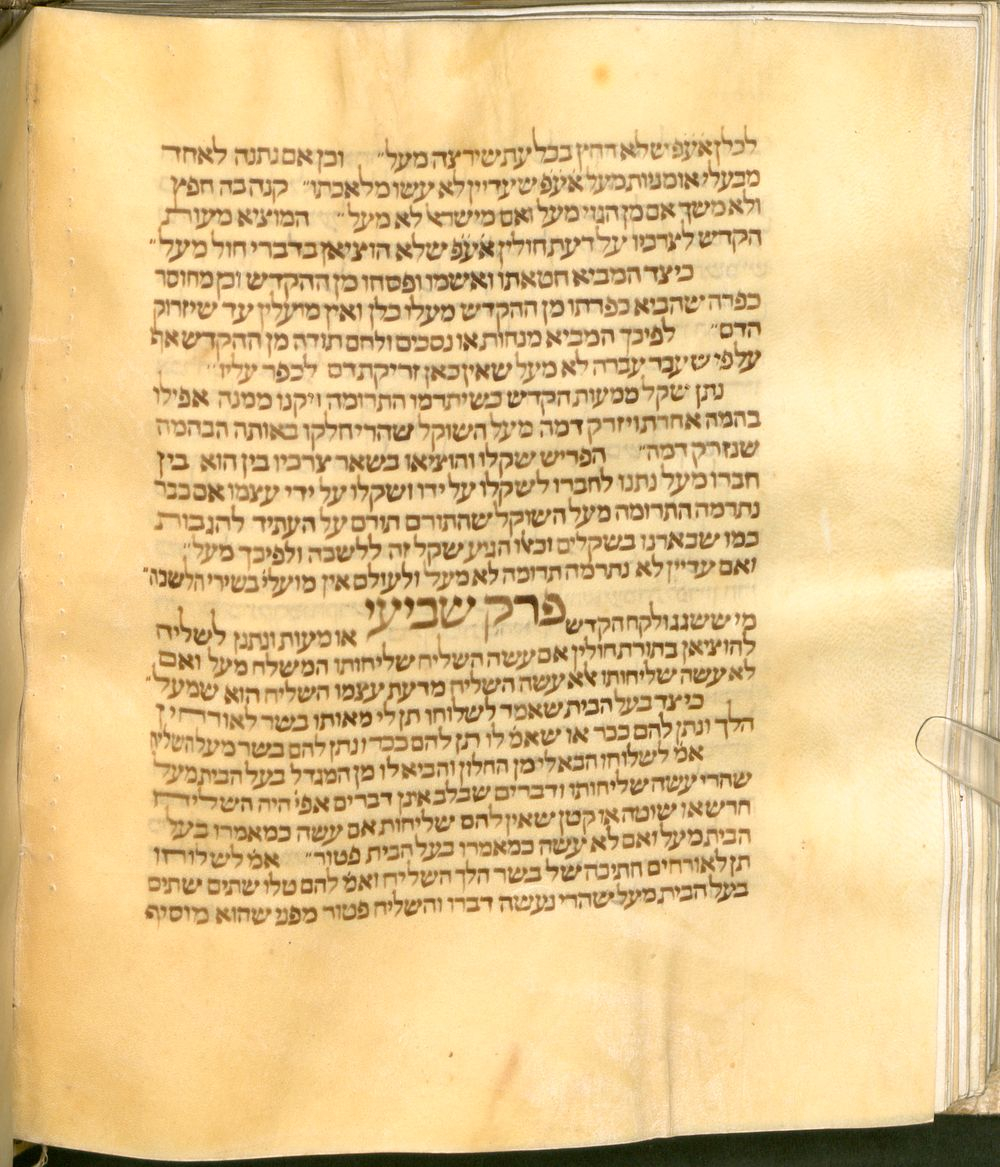 לבלן אע֗פ֗ שלא רחץ בכל עת שירצה מעל״ וכן אם נתנה לאחד
מבעלי אומניות מעל אע֗פ֗ שעדיין לא עשו מלאכתו״ קנה בה חפץ
ולא משך אם מן הגוי מעל ואם מישראל לא מעל״ המוציא מעות
הקדש לצרכיו על דעת חולין אע֗פ֗ שלא הוציאן בדברי חול מעל״
כיצד המביא חטאתו ואשמו ופסחו מן ההקדש וכן מחוסר
כפרה שהביא כפרתו מן ההקדש מעלי כלן ואין מועלין עד שיזרוק
הדם״ לפיכך המביא מנחות או נסכים ולחם תודה מן ההקדש אף
על פי שעבר עברה לא מעל שאין כאן זריקת דם לכפר עליו״
נתן שקל ממעות הקדש כשיתרמו התרומה ויקנו ממנה אפילו
בהמה אחרת ויזרק דמה מעל השוקל שהרי חלקו באותה הבהמה
שנזרק דמה״ הפריש שקלו והוציאו בשאר צרכיו בין הוא בין
חברו מעל נתנו לחברו לשקלו על ידו ושקלו על ידי עצמו אם כבר
נתרמה התרומה מעל השוקל שהתורם תורם על העתיד להגבות
כמו שבארנו בשקלים וכאלו הגיע שקל זה ללשכה ולפיכך מעל״
ואם עדיין לא נתרמה תרומה לא מעל ולעולם אין מועלי֗ בשירי הלשכה״
פרק שביעי
מי ששגג ולקח הקדש או מעות ונתנן לשליח
להוציאן בתורת חולין אם עשה השליח שליחותו המשלח מעל ואם
לא עשה שליחותו אלא עשה השליח מדעת עצמו השליח הוא שמעל״
כיצד בעל הבית שאמר לשלוחו תן לי מאותו בשר לאורחין
הלך ונתן להם כבד או שאמ֗ לו תן להם כבד ונתן להם בשר מעל השליח
אמ֗ לשלוחו הבא לי מן החלון והביא לו מן המגדל בעל הבית מעל
שהרי עשה שליחותו ודברים שבלב אינן דברים אפי֗ היה השליח
חרש או שוטה או קטן שאין להם שליחות אם עשה כמאמרו בעל
הבית מעל ואם לא עשה כמאמרו בעל הבית פטור״ אמ֗ לשלוחו
תן לאורחים חתיכה של בשר הלך השליח ואמ֗ להם טלו שתים שתים
בעל הבית מעל שהרי נעשה דברו והשליח פטור מפני שהוא מוסיף